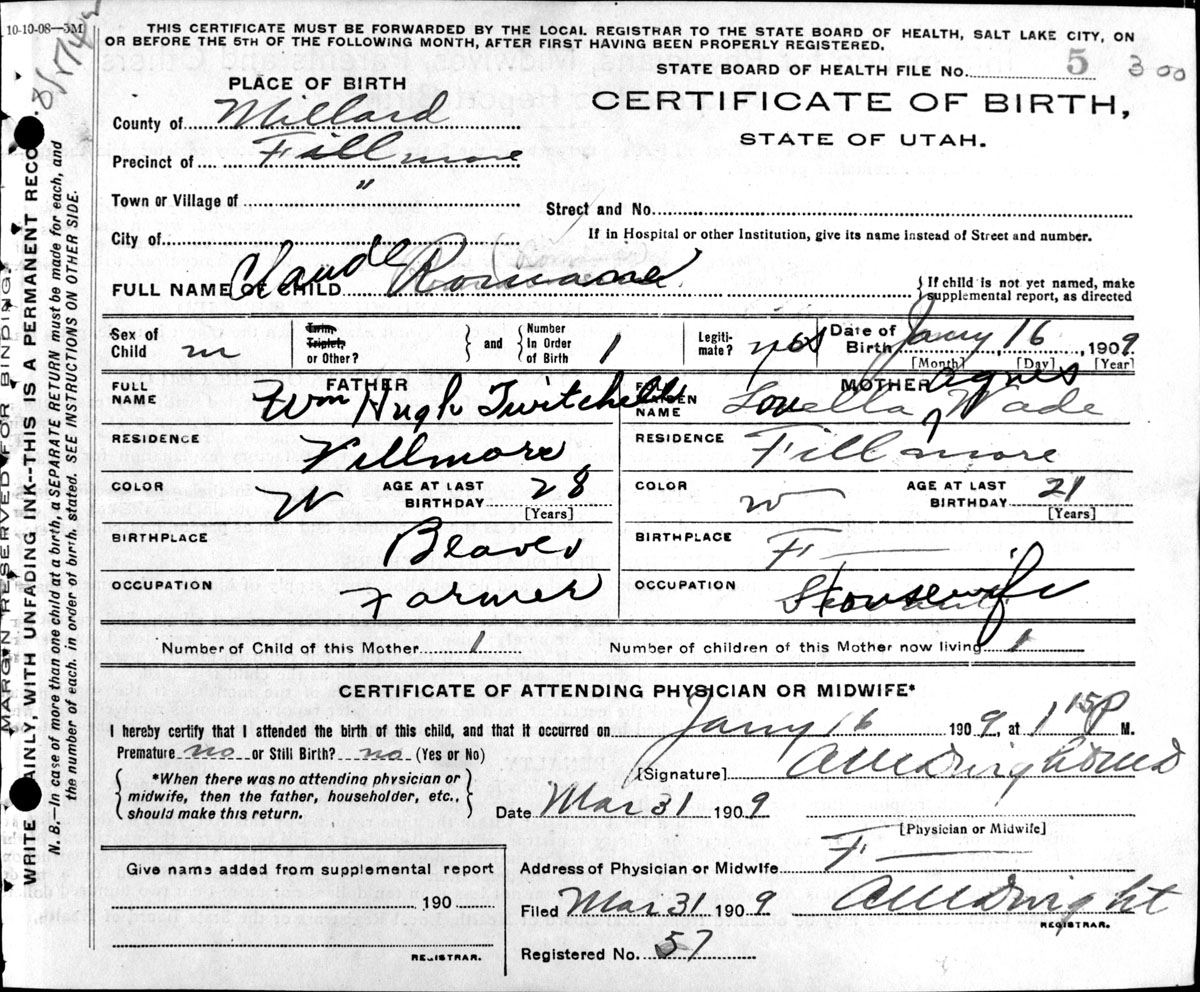 10-10-08—3M
THIS CERTIFICATE MUST BE FORWARDED BY THE LOCAL REGISTRAR TO THE STATE BOARD OF HEALTH, SALT LAKE CITY, ON
OR BEFORE THE 5TH OF THE FOLLOWING MONTH, AFTER FIRST HAVING BEEN PROPERLY REGISTERED.
STATE BOARD OF HEALTH FILE No. 5 300
PLACE OF BIRTH
CERTIFICATE OF BIRTH,
STATE OF UTAH.
County of Millard
Precinct of Fillmore
Town or Village of "
Street and No.
City of
If in Hospital or other Institution, give its name instead of Street and number.
FULL NAME OF CHILD Claude Romaine
If child is not yet named, make
supplemental report, as directed
Sex of Child m
Twin, Triplet, or Other?
and
Number In Order of Birth 1
Legitimate? yes
Date of Birth Jany 16, 1909
[Month] [Day] [Year]
FATHER
FULL NAME Wm Hugh Twitchell
MOTHER
MAIDEN NAME Louella Agnes Wade
RESIDENCE Fillmore
RESIDENCE Fillmore
COLOR W AGE AT LAST BIRTHDAY 28 [Years]
COLOR W AGE AT LAST BIRTHDAY 21 [Years]
BIRTHPLACE Beaver
BIRTHPLACE F
OCCUPATION Farmer
OCCUPATION Housewife
Number of Child of this Mother 1
Number of children of this Mother now living 1
CERTIFICATE OF ATTENDING PHYSICIAN OR MIDWIFE*
I hereby certify that I attended the birth of this child, and that it occurred on Jany 16 1909, at 1 15 P M.
Premature no or Still Birth? no (Yes or No)
*When there was no attending physician or
midwife, then the father, householder, etc.,
should make this return.
[Signature]
Date Mar 31 1909
[Physician or Midwife]
Give name added from supplemental report
190
REGISTRAR.
Address of Physician or Midwife F
Filed Mar 31 1909 Dwight
REGISTRAR.
Registered No. 57
MARGIN RESERVED FOR BINDING.
WRITE PLAINLY, WITH UNFADING INK--THIS IS A PERMANENT RECO
N. B.—In case of more than one child at a birth, a SEPARATE RETURN must be made for each, and
the number of each, in order of birth, stated. SEE INSTRUCTIONS ON OTHER SIDE.